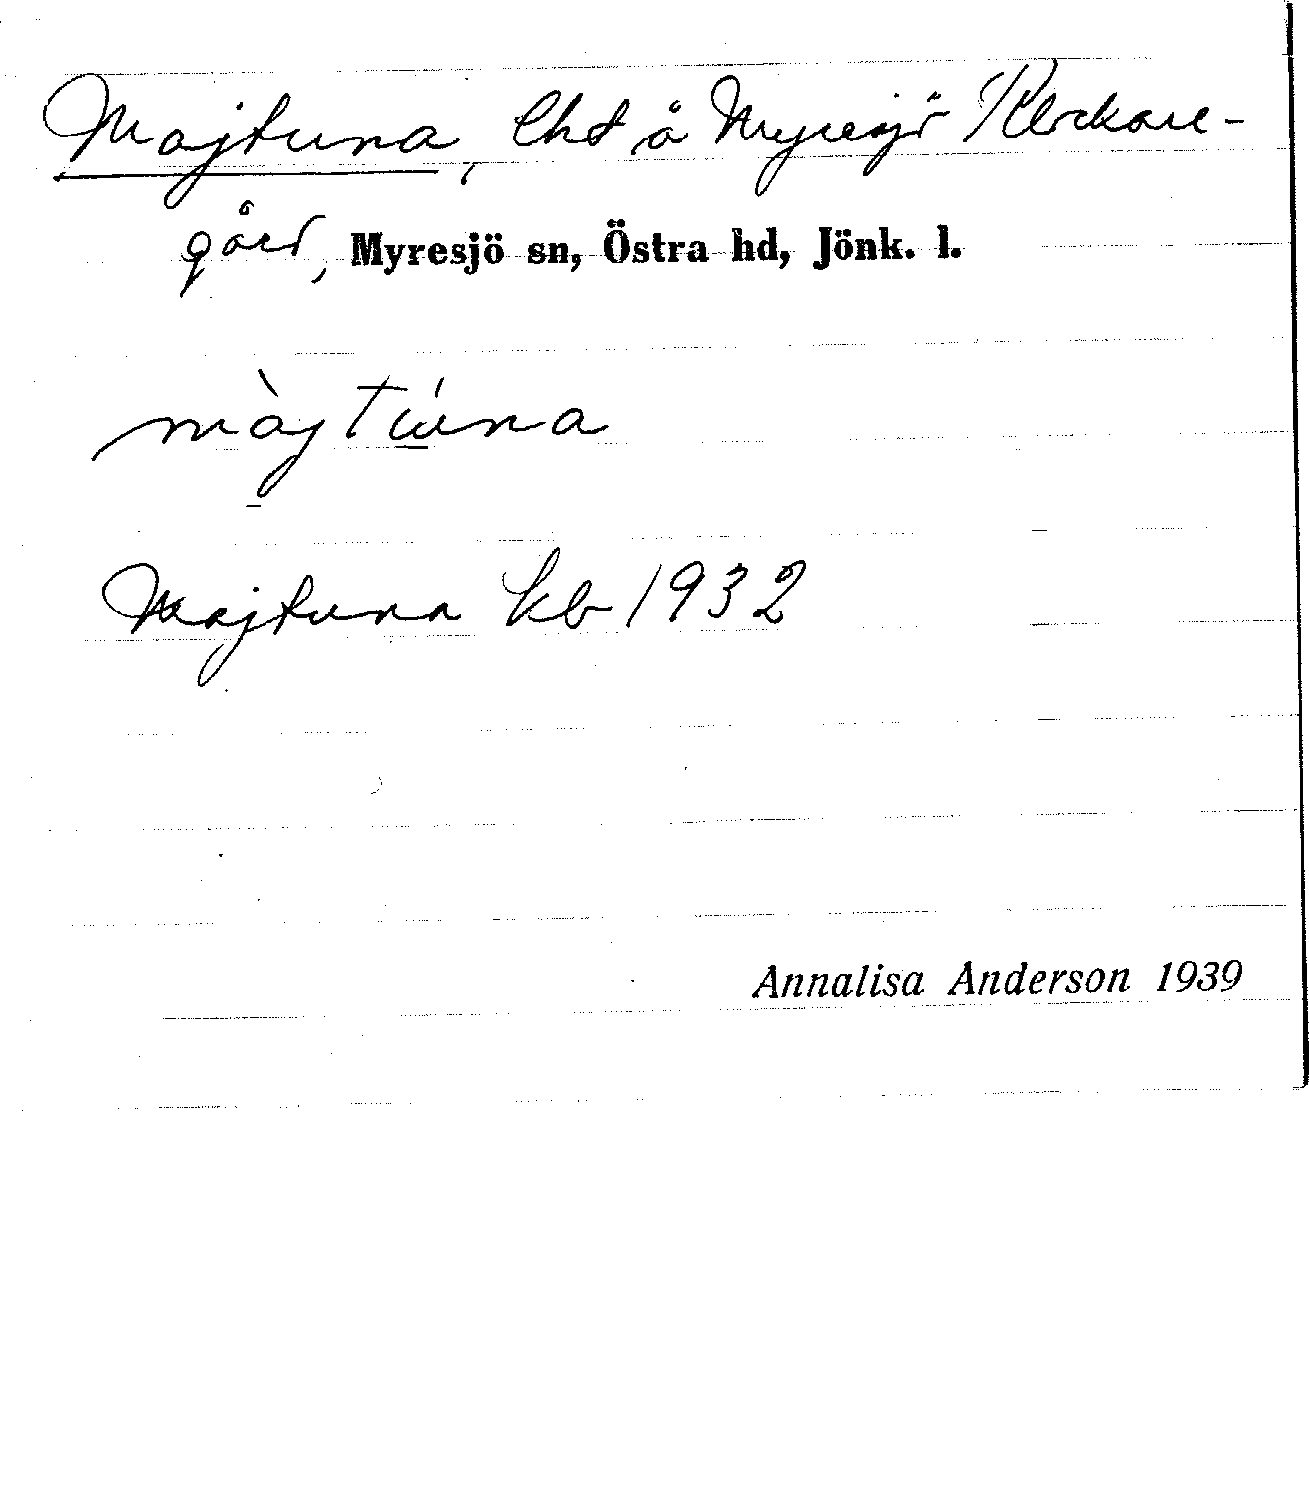 Majtuna, lht å Myresjö Klockare-
gård, Myresjö sn, Östra hd, Jönk. l.
màjtúna
Majtuna kb 1932
Annalisa Anderson 1939